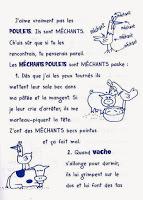 J'aime vraiment pas les
POULETS. Ils sont MÉCHANTS.
Chuis sûr que si tu les
rencontrais, tu penserais pareil.
Les MÉCHANTS POULETS sont MÉCHANTS paske :
1. Dès que j'ai les yeux tournés ils
mettent leur sale bec dans
ma pâtée et la mangent. Si
je leur crie d'arrêter, ils me
morteau-piquent la tête.
Z'ont des MÉCHANTS becs pointus
et ça fait mal.
2. Quand vache
s'allonge pour dormir,
ils lui grimpent sur le
dos et lui font des tas